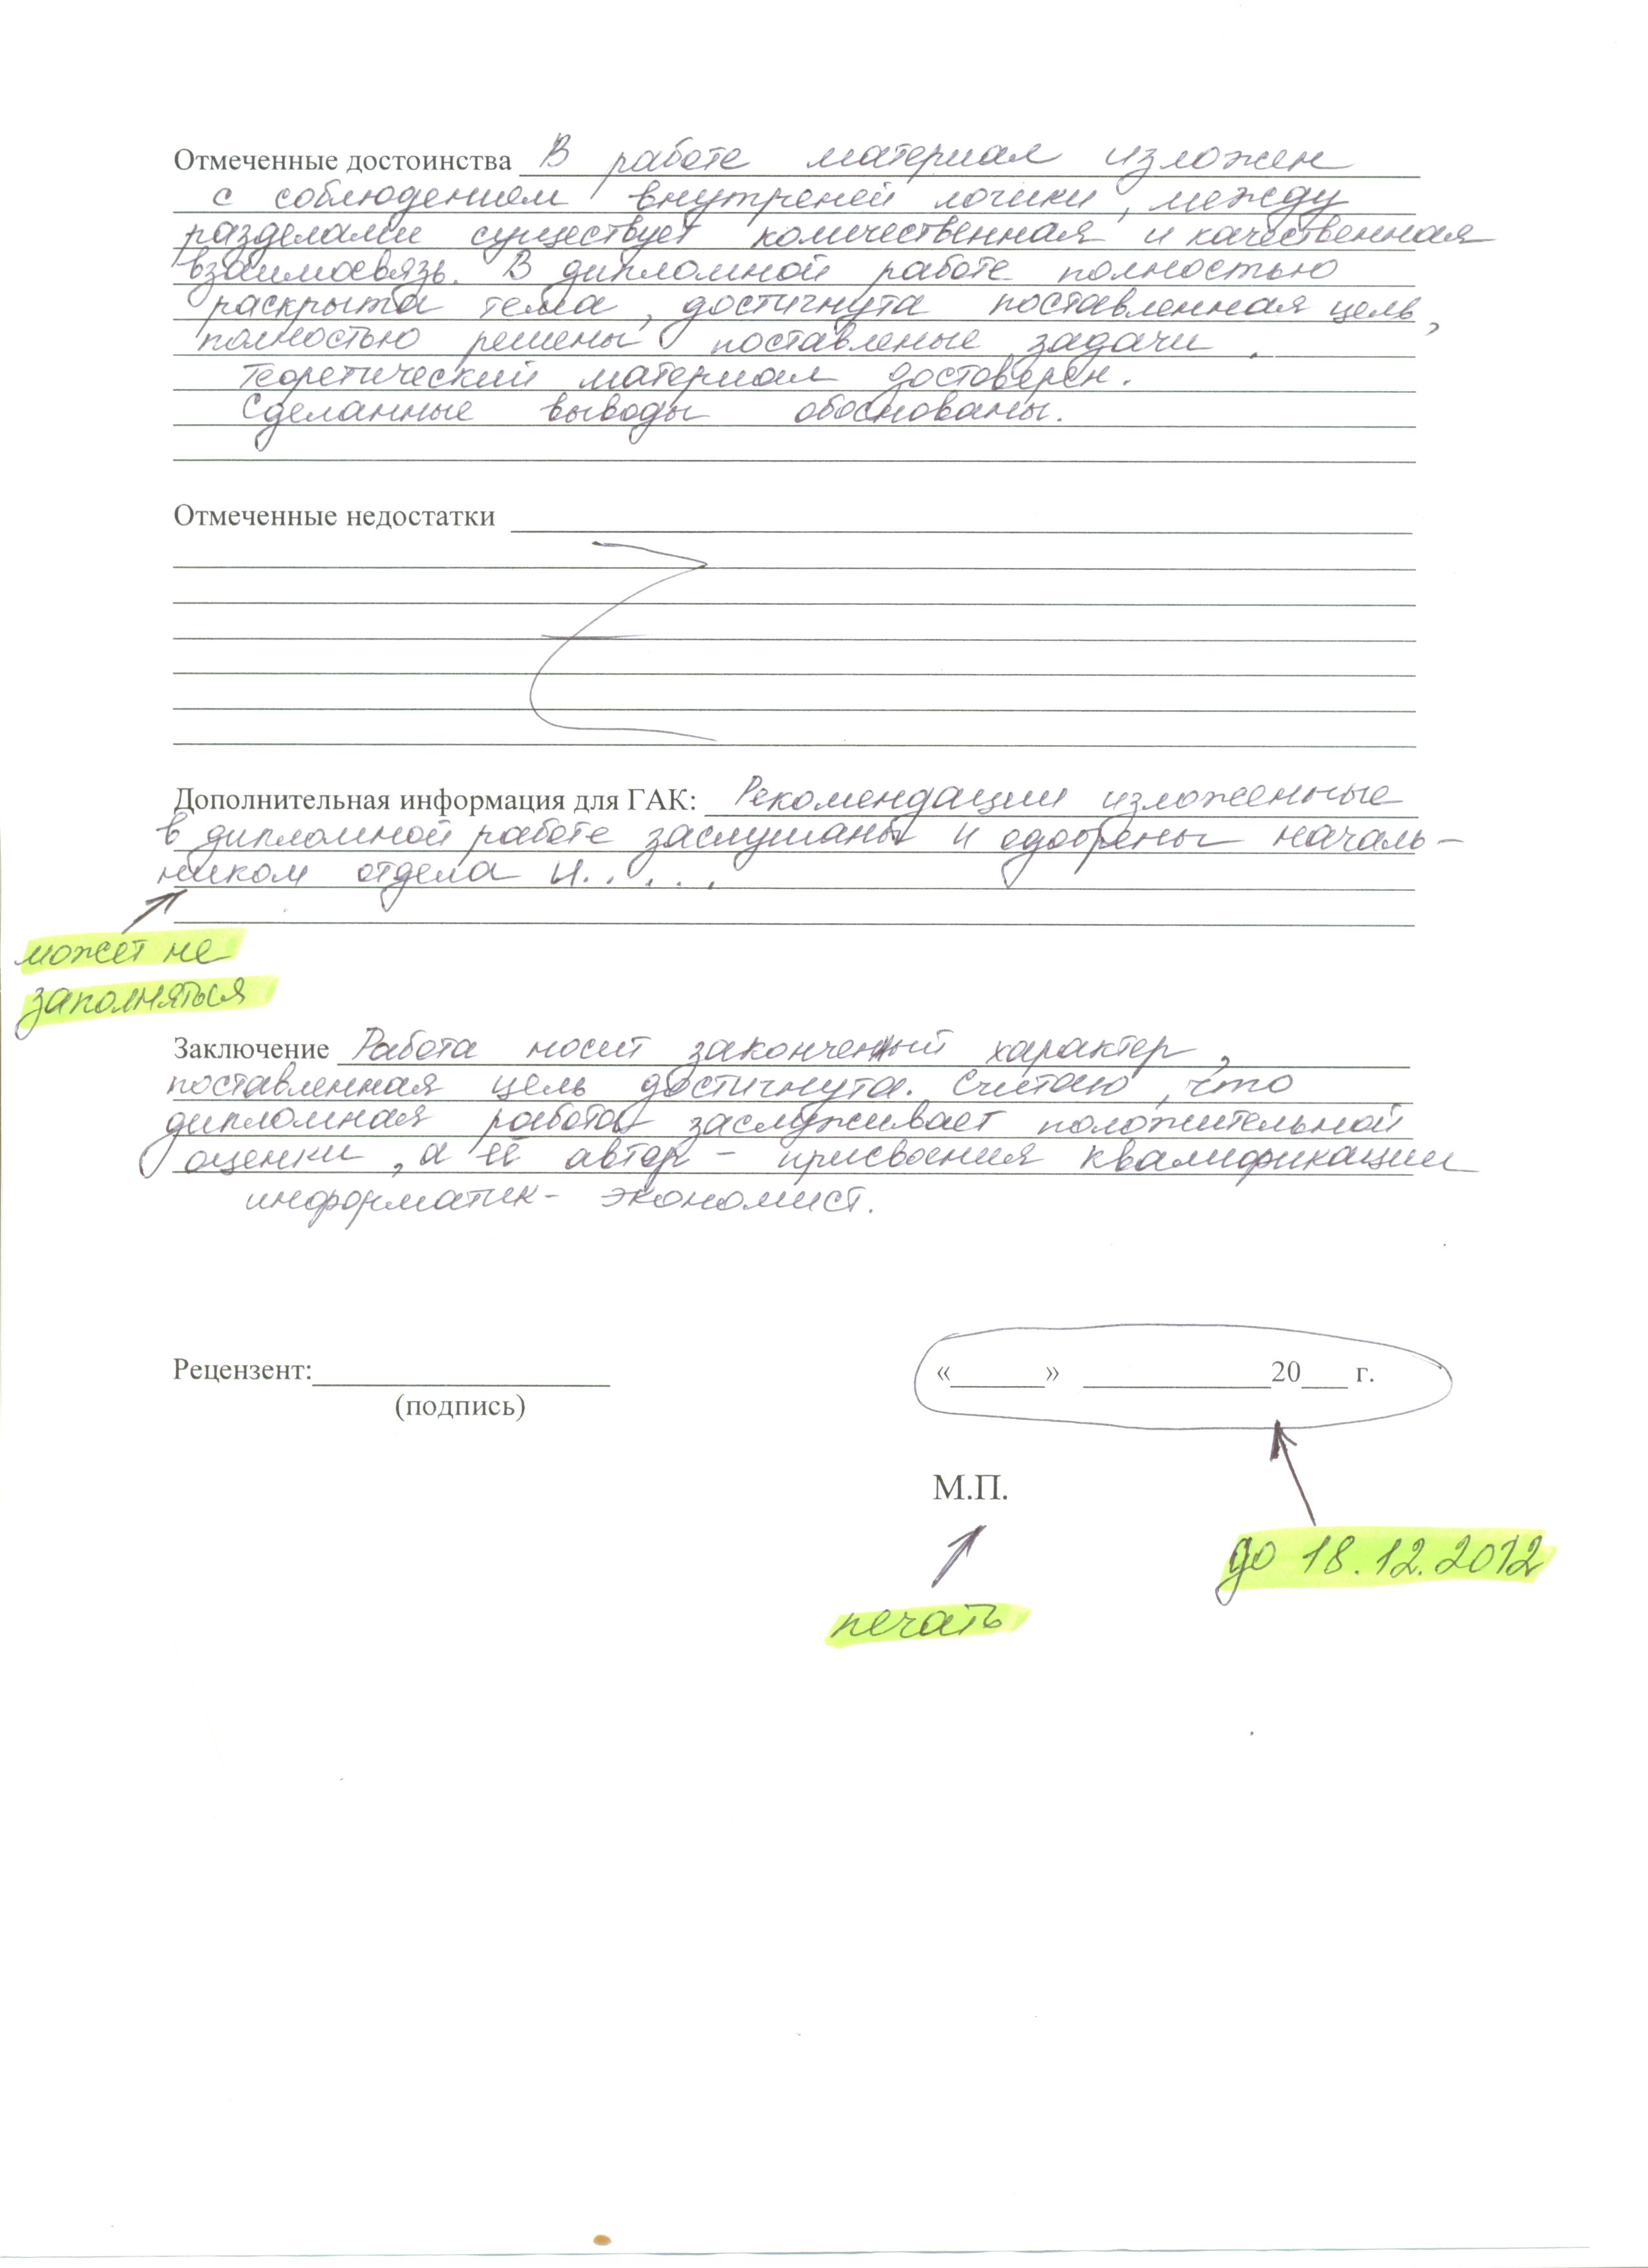 Отмеченные достоинства В работе материал изложен
с соблюдением внутреней логики, между
разделами существует количественная и качественная
взаимосвязь. В дипломной работе полностью
раскрыта тема, достигнута поставленная цель,
полностью решены поставленые задачи.
Теоретический материал достоверен.
Сделанные выводы обоснованы.
Отмеченные недостатки
Дополнительная информация для ГАК: Рекомендации изложенные
в дипломной работе заслушаны и одобрены началь-
ником отдела И. . . . .
может не
заполняться
Заключение Работа носит законченный характер,
поставленная цель достигнута. Считаю, что
дипломная работа заслуживает положительной
оценки, а её автор - присвоения квалификации
информатик- экономист.
Рецензент:__________ «____» __________20___ г.
(подпись)
М.П.
до 18.12.2012
печать